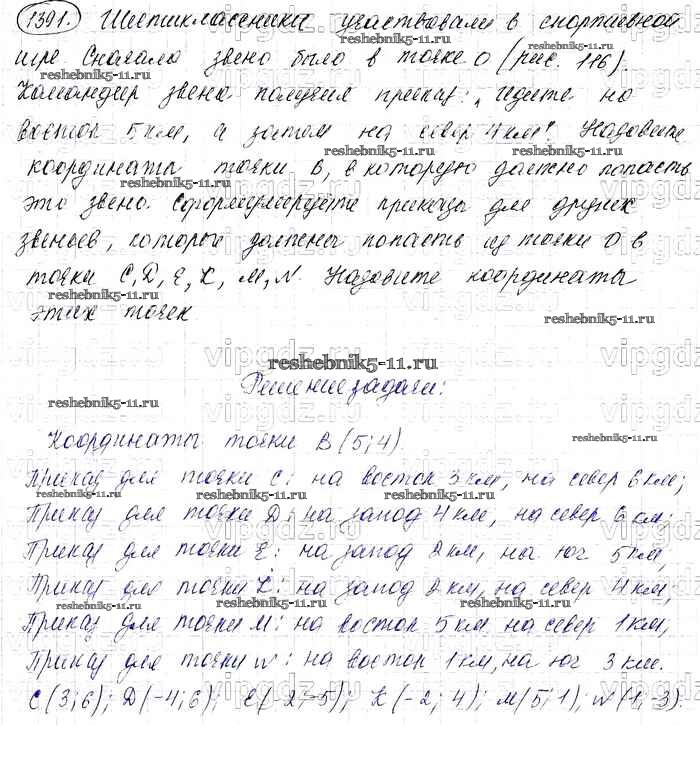 1391. Шестиклассники участвовали в спортивной
игре Сначала звено было в точке О (рис. 116).
Командир звена получил приказ: „Идите на
восток 5 км, а затем на север 4 км". Назовите
координаты точки В, в которую должно попасть
это звено. Сформулируйте приказы для других
звеньев, которые должны попасть из точки О в
точки С, D, E, K, M, N. Назовите координаты
этих точек
Решение задачи:
Координаты точки В (5; 4)
Приказ для точки С: на восток 3 км, на север 6 км;
Приказ для точки D: на запад 4 км, на север 6 км;
Приказ для точки E: на запад 2 км, на юг 5 км,
Приказ для точки K: на запад 2 км, на север 4 км;
Приказ для точки M: на восток 5 км на север 1 км,
Приказ для точки N: на восток 1 км, на юг 3 км.
С (3; 6); D (-4; 6); E (-2 -5); K (-2; 4); M (5; 1); N (1, -3).
reshebnik5-11.ru
vipgdz.ru